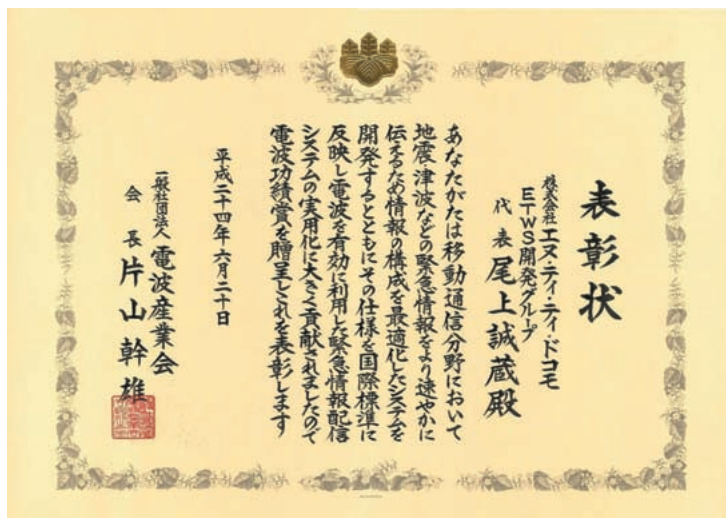 表彰状
株式会社エヌ・ティ・ティ・ドコモ
ETWS開発グループ
代表 尾上誠蔵殿
あなたがたは移動通信分野において
地震・津波などの緊急情報をより速やかに
伝えるため情報の構成を最適化したシステムを
開発するとともにその仕様を国際標準に
反映し電波を有効に利用した緊急情報配信
システムの実用化に大きく貢献されましたので
電波功績賞を贈呈しこれを表彰します
平成二十四年六月二十日
一般社団法人 電波産業会
会長 片山幹雄